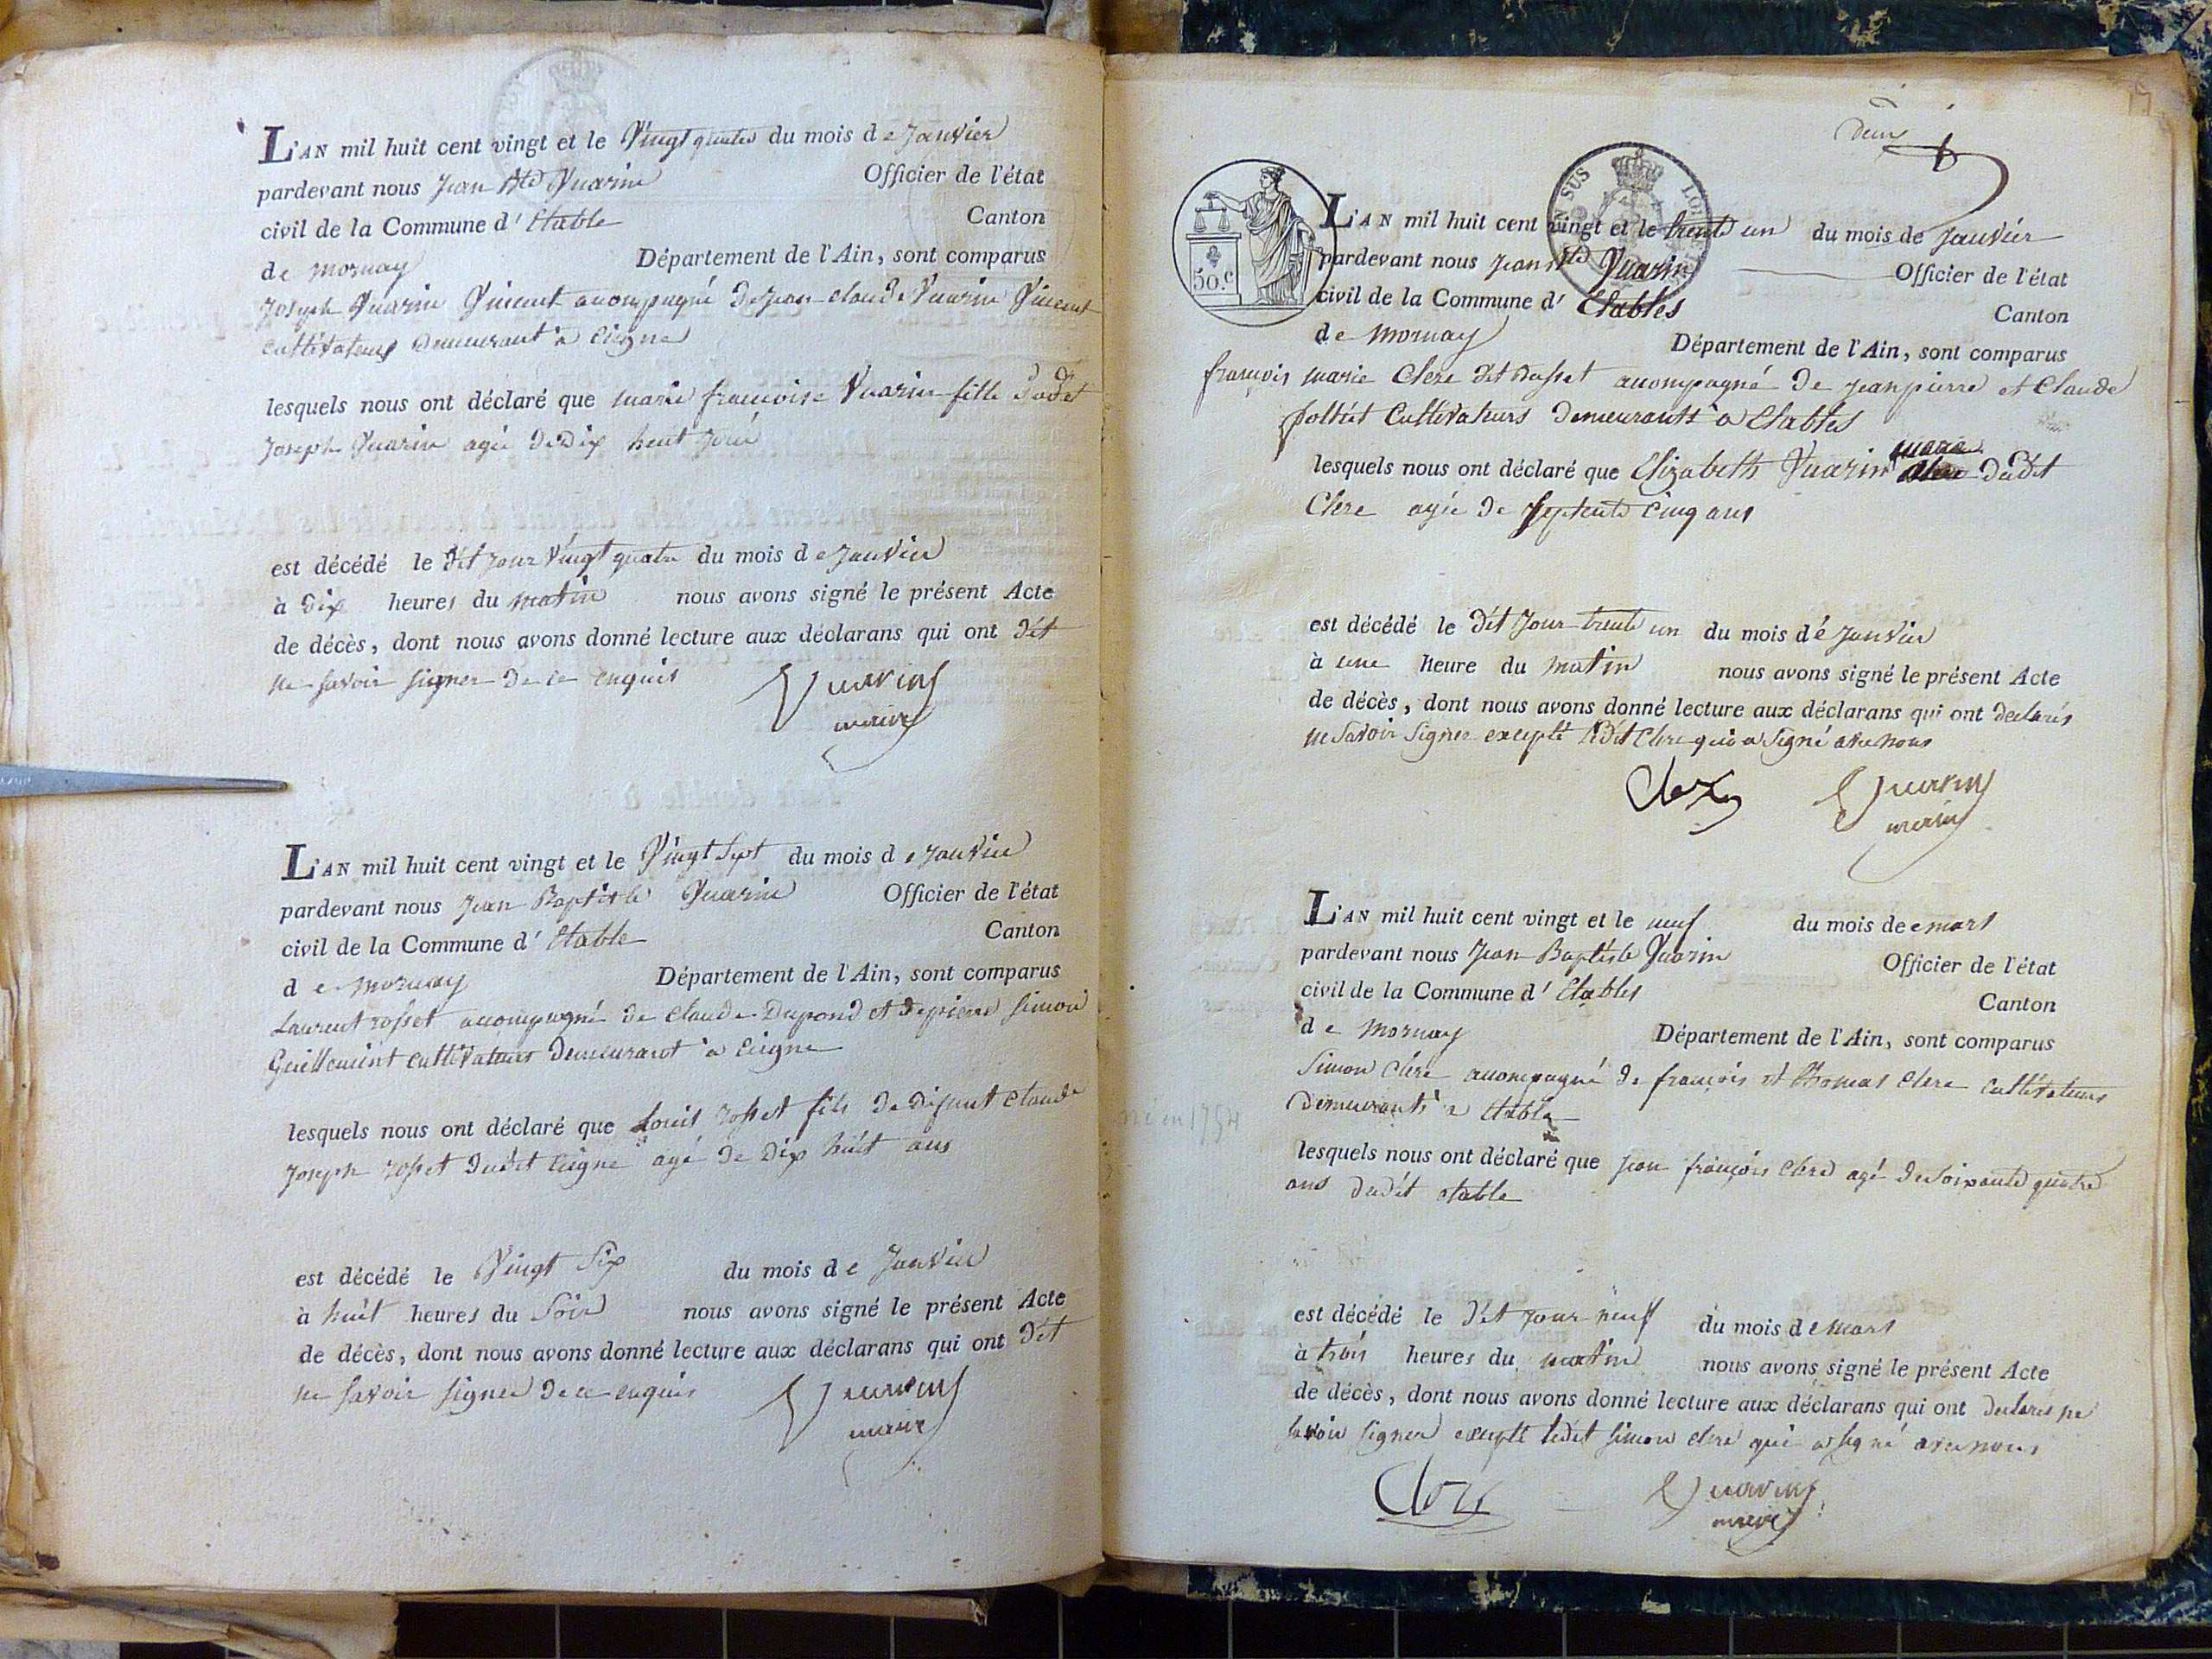 L'AN mil huit cent vingt et le Vingt quatre du mois de Janvier
pardevant nous Jean Bte Vuarin Officier de l'état
civil de la Commune d' Etable Canton
de mornay Département de l'Ain, sont comparus
Joseph Vuarin Vincent accompagné de Jean-claude Vuarin Vincent
cultivateurs demeurant à Ceigne
lesquels nous ont déclaré que marie francoise Vuarin fille dudit
Joseph Vuarin agée de dix heut
est décédé le dit jour Vingt quatre du mois de Janvier
à dix heures du matin nous avons signé le présent Acte
de décès, dont nous avons donné lecture aux déclarans qui ont dit
ne savoir signer de ce enquis
Vuarin
maire
L'AN mil huit cent vingt et le Vingt Sept du mois de Janvier
pardevant nous Jean Baptiste Vuarin Officier de l'état
civil de la Commune d' Etable Canton
de mornay Département de l'Ain, sont comparus
Laurent rosset accompagné de Claude Dupond et de pierre Simon
Guillemint cultivateurs demeurant à Ceigne
lesquels nous ont déclaré que Louis rosset fils de défunt Claude
Joseph rosset dudit Ceigne agé de dix huit ans
est décédé le Vingt Six du mois de Janvier
à huit heures du Soir nous avons signé le présent Acte
de décès, dont nous avons donné lecture aux déclarans qui ont dit
ne savoir signer de ce enquis
Vuarin
maire
deux
50.c
L'AN mil huit cent vingt et le trente un du mois de Janvier
pardevant nous Jean Bte Vuarin Officier de l'état
civil de la Commune d' Etables Canton
de mornay Département de l'Ain, sont comparus
francois marie Clerc dit accompagné de jean pierre et Claude
Cultivateurs demeurants à Etables
lesquels nous ont déclaré que Elizabeth Vuarin dudit
Clerc agée de septente Cinq ans
est décédé le dit Jour trente un du mois de Janvier
à une heure du matin nous avons signé le présent Acte
de décès, dont nous avons donné lecture aux déclarans qui ont declarés
ne Savoir Signer excepté ledit Clerc qui a Signé avec nous
Clerc Vuarin
maire
L'AN mil huit cent vingt et le neuf du mois de mars
pardevant nous Jean Baptiste Vuarin Officier de l'état
civil de la Commune d' Etables Canton
de mornay Département de l'Ain, sont comparus
Simon Clerc accompagné de francois et thomas Clerc cultivateurs
demeurants à Etable
né en 1754
lesquels nous ont déclaré que jean françois Clerc agé de Soixante quatre
ans dudit etable
est décédé le dit jour neuf du mois de mars
à trois heures du matin nous avons signé le présent Acte
de décès, dont nous avons donné lecture aux déclarans qui ont declarés ne
savoir signer excepté ledit Simon Clerc qui a signé avec nous
Clerc Vuarin
maire